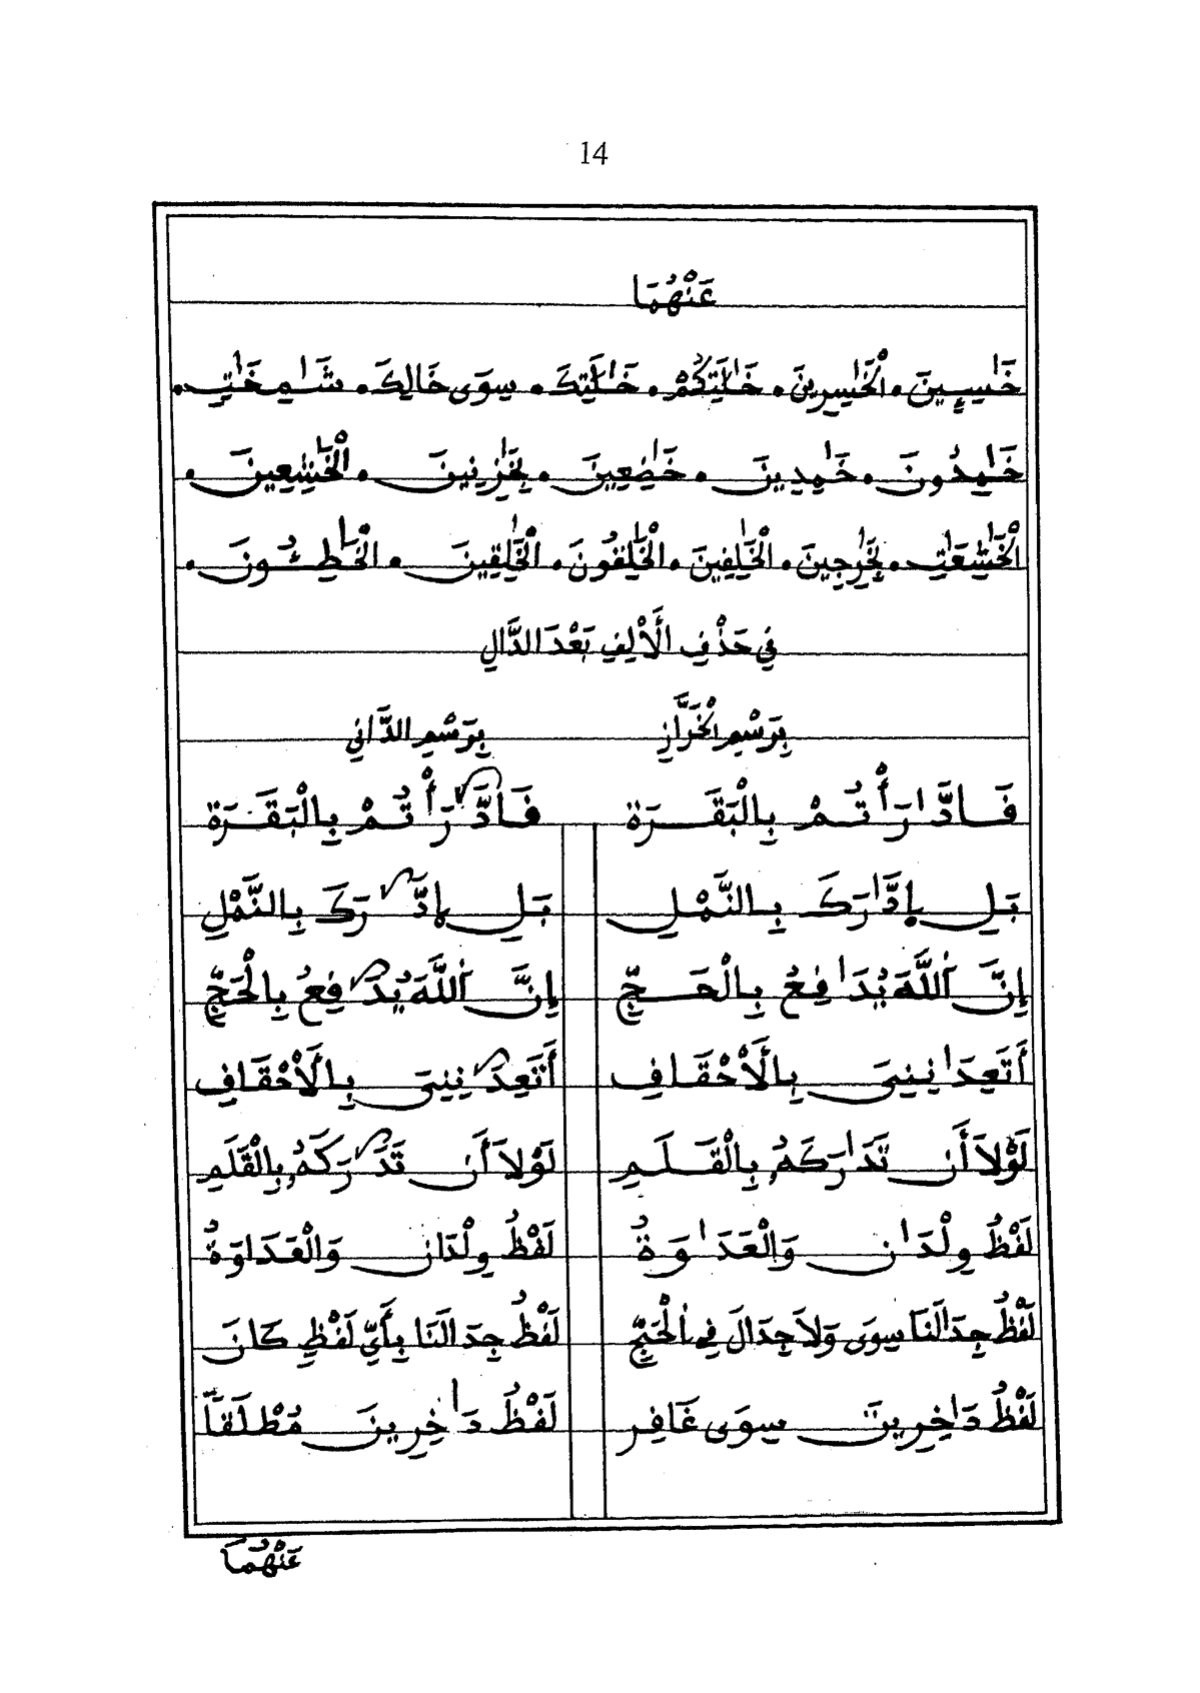 14
عَنْهُمَا
خَٰسِـِٕينَ • الْخَٰسِرِينَ • خَٰلَٰتِكُمْ • خَٰلَٰتِكَ • سِوَى خَالِكَ • شَٰمِخَٰتٍ •
خَٰمِدُونَ • خَٰمِدِينَ • خَٰضِعِينَ • بِخَٰزِنِينَ • الْخَٰشِعِينَ •
الْخَٰشِعَٰتِ • بِخَٰرِجِينَ • الْخَٰلِفِينَ • الْخَٰلِقُونَ • الْخَٰلِقِينَ • الْخَٰطِـُٔونَ •
فِي حَذْفِ الْأَلِفِ بَعْدَ الدَّالِ
بِرَسْمِ الْخَرَّازِ بِرَسْمِ الدَّانِي
فَادَّٰرَأْتُمْ بِالْبَقَرَةِ فَادَّٰرَأْتُمْ بِالْبَقَرَةِ
بَلِ إِدَّٰرَكَ بِالنَّمْلِ بَلِ إِدَّٰرَكَ بِالنَّمْلِ
إِنَّ اَللَّهَ يُدَٰفِعُ بِالْحَجِّ إِنَّ اَللَّهَ يُدَٰفِعُ بِالْحَجِّ
أَتَعِدَٰنِنِىَ بِالْأَحْقَافِ أَتَعِدَٰنِنِىَ بِالْأَحْقَافِ
لَوْلَا أَن تَدَٰرَكَهُۥ بِالْقَلَمِ لَوْلَا أَن تَدَٰرَكَهُۥ بِالْقَلَمِ
لَفْظُ وِلْدَٰن وَالْعَدَٰوَةُ لَفْظُ وِلْدَان وَالْعَدَاوَةُ
لَفْظُ جِدَٰلَنَا سِوَى وَلَا جِدَالَ فِي اَلْحَجِّ لَفْظُ جِدَالَنَا بِأَيِّ لَفْظٍ كَانَ
لَفْظُ دَٰخِرِينَ سِوَى غَافِر لَفْظُ دَٰخِرِينَ مُطْلَقاً
عَنْهُمَا